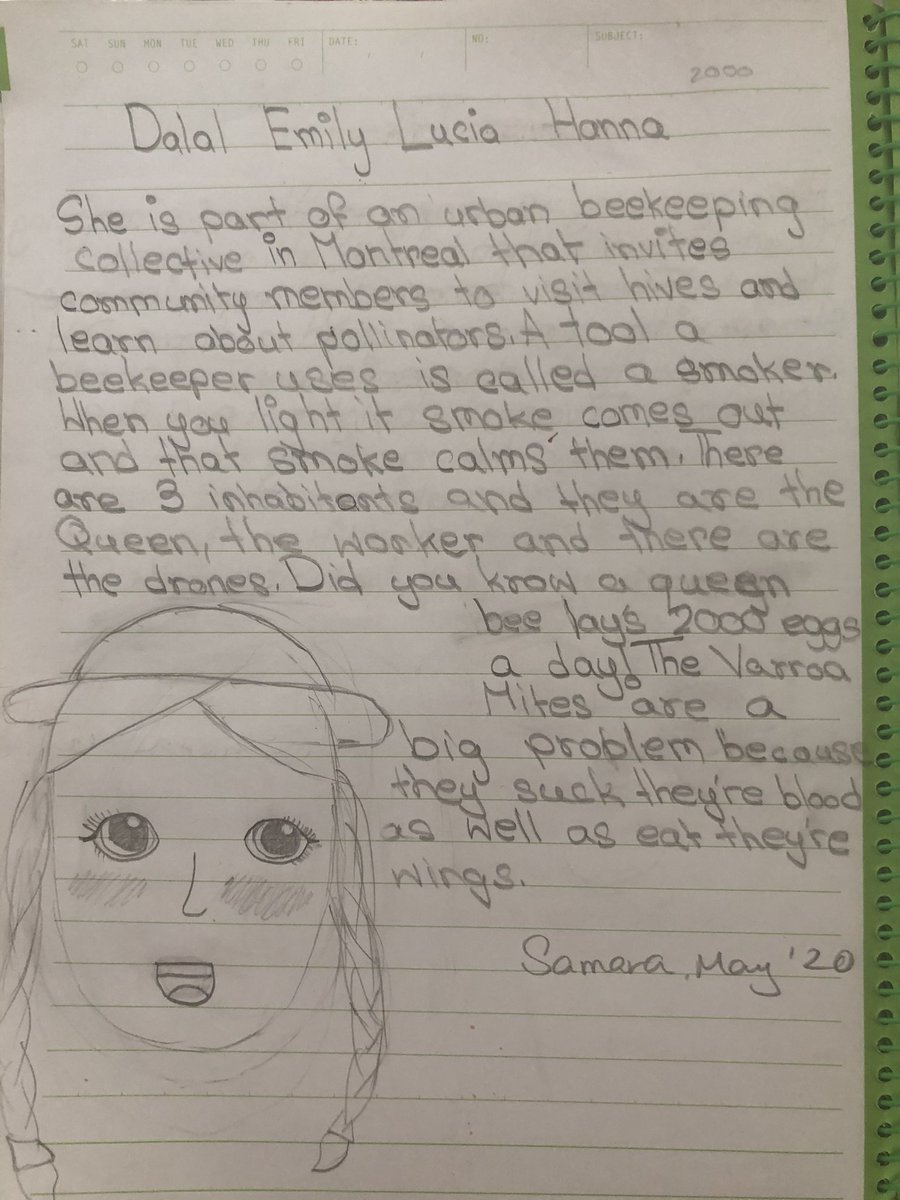 SAT SUN MON TUE WED THU FRI DATE: NO: SUBJECT:
2000
Dalal Emily Lucia Hanna
She is part of an urban beekeeping
collective in Montreal that invites
community members to visit hives and
learn about pollinators. A tool a
beekeeper uses is called a smoker.
When you light it smoke comes out
and that smoke calms them. There
are 3 inhabitants and they are the
Queen, the worker and there are
the drones. Did you know a queen
bee lays 2000 eggs
a day! The Varroa
Mites are a
big problem because
they suck they're blood
as well as eat they're
wings.
Samara, May '20